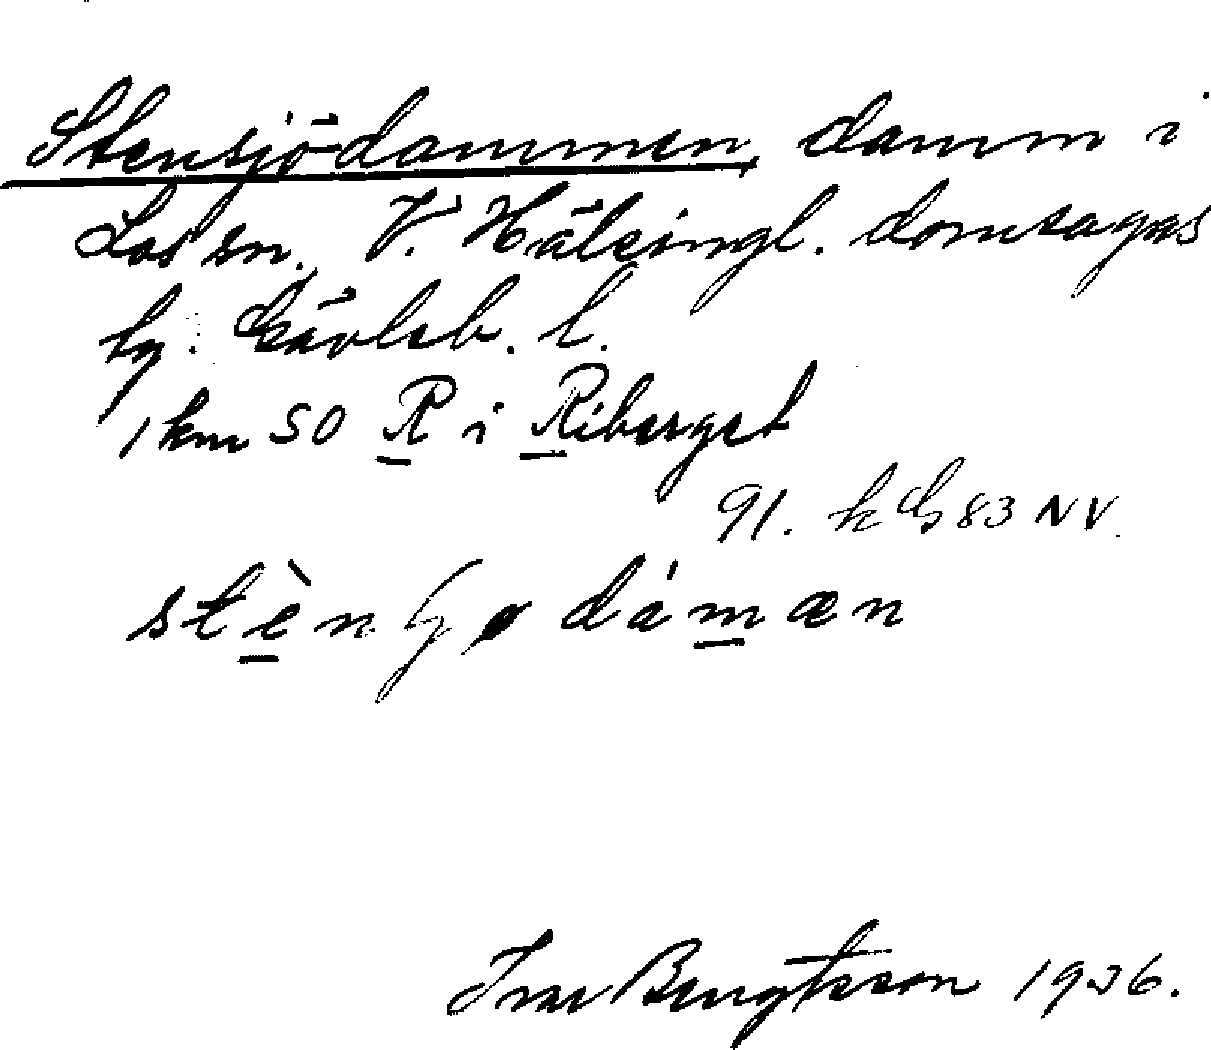 Stensjödammen, damm i
Los sn. V. Hälsingl. domsagas
tg. Gävleb. l.
1 km SO R i Riberget
91. k G 83 NV.
stènʃø dámæn
Ivar Bengtsson 1936.